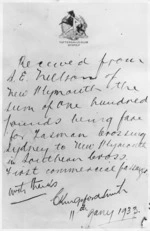 Received from
S.E. Neilson of
New Plymouth the
sum of one hundred
pounds being fare
for Tasman crossing
Sydney to New Plymouth
in Southern Cross.
First commercial passage
with thanks
C Kingsford Smith
11th Jany 1933